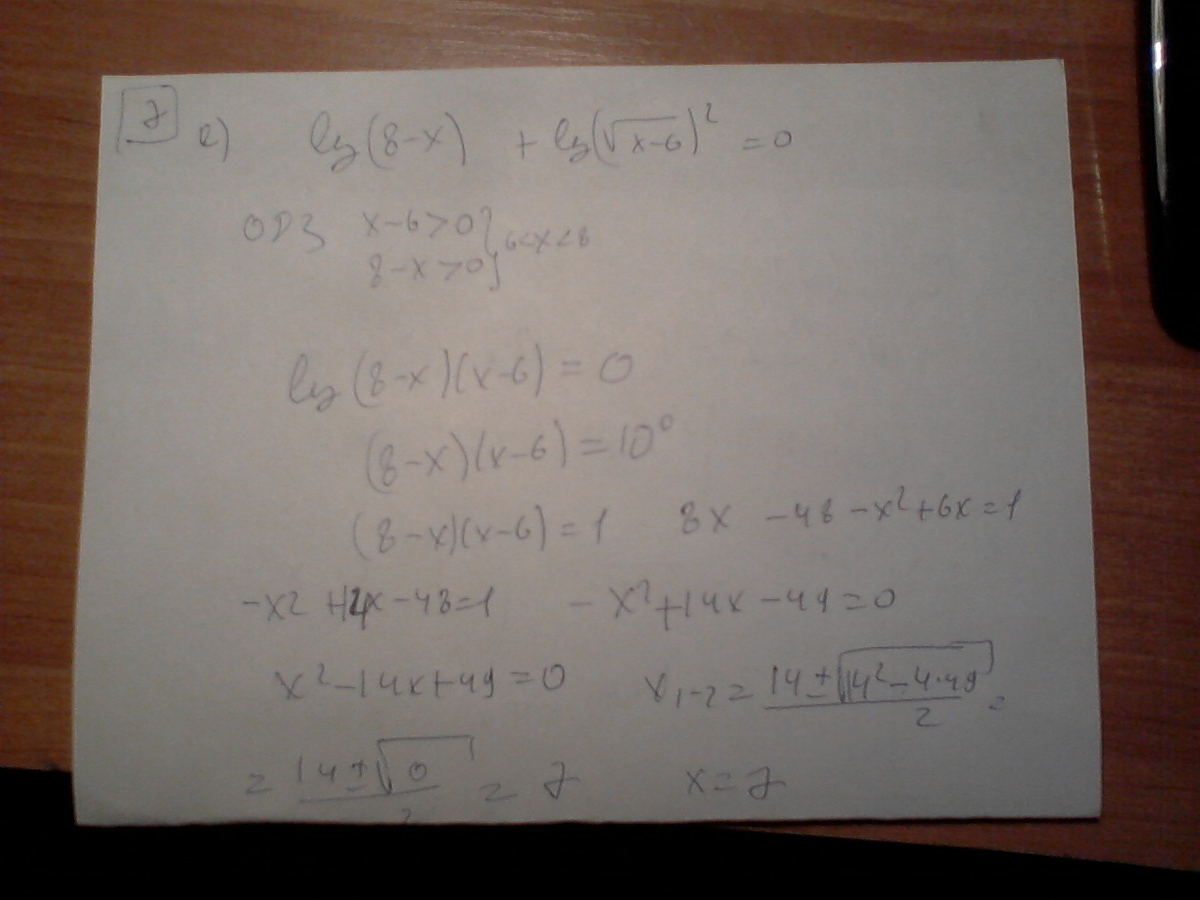 7 е) lg(8-x) + lg(√x-6)² = 0
ОДЗ x-6>0 } 6<x<8
8-x>0
lg(8-x)(x-6) = 0
(8-x)(x-6) = 10⁰
(8-x)(x-6) = 1 8x -48 -x²+6x=1
-x2 +14x-48=1 -x²+14x-49=0
x²-14x+49=0 x₁₋₂ = (14±√14²-4·49)/2 =
= (14±√0)/2 = 7 x=7